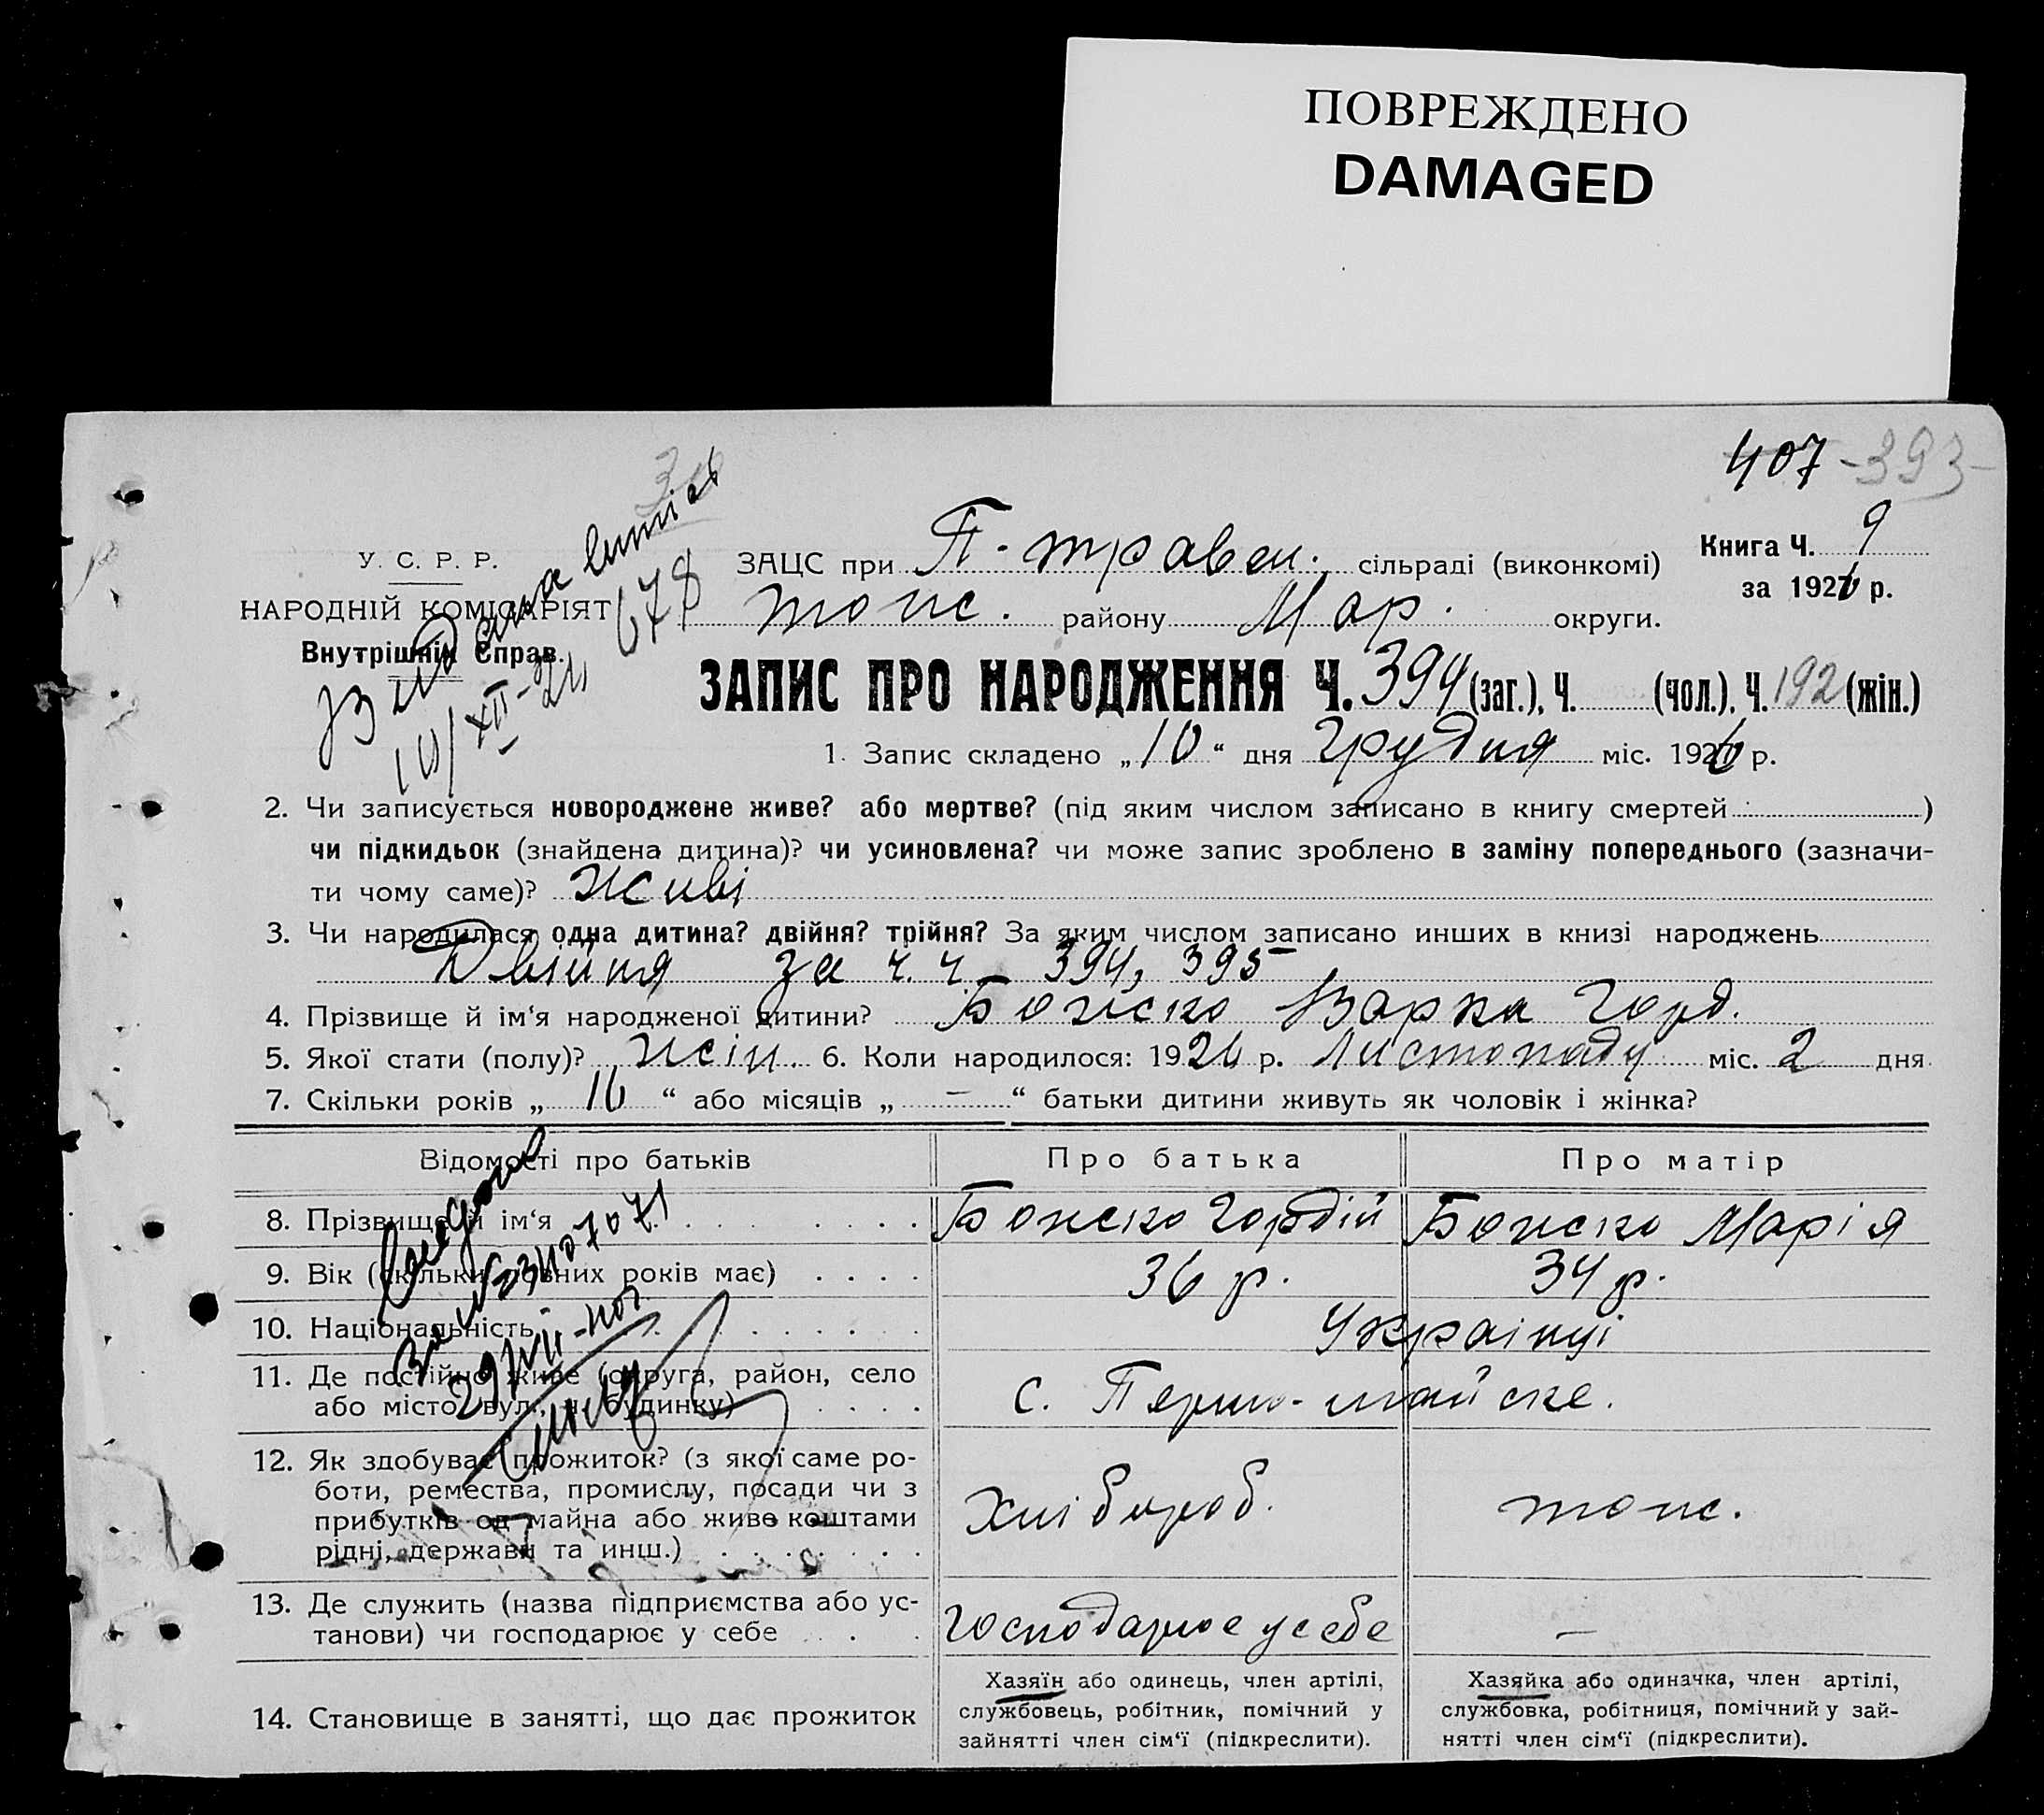 ПОВРЕЖДЕНО
DAMAGED
407 -393-
У. С. Р. Р.
НАРОДНІЙ КОМІСАРІЯТ
Внутрішніх Справ.
678
10/XII-26
ЗАЦС при П-травен. сільраді (виконкомі)
топс. району Мар. округи.
Книга Ч. 9
за 1926 р.
ЗАПИС ПРО НАРОДЖЕННЯ Ч. 394 (заг.), Ч. (чол.), Ч. 192 (жін.)
1. Запис складено „10“ дня Грудня міс. 1926 р.
2. Чи записується новороджене живе? або мертве? (під яким числом записано в книгу смертей )
чи підкидьок (знайдена дитина)? чи усиновлена? чи може запис зроблено в заміну попереднього (зазначи-
ти чому саме)? Живі
3. Чи народилася одна дитина? двійня? трійня? За яким числом записано инших в книзі народжень
Двійня за ч.ч 394, 395
4. Прізвище й ім‘я народженої дитини? Божко Варка Горд.
5. Якої стати (полу)? жін. 6. Коли народилося: 1926 р. Листопаду міс. 2 дня
7. Скільки років „ 16 “ або місяців „ – “ батьки дитини живуть як чоловік і жінка?
Відомості про батьків Про батька Про матір
8. Прізвище й ім‘я Божко Гордій Божко Марія
9. Вік (скільки повних років має) 36 р. 34 р.
10. Національність Українці
11. Де постійно живе (округа, район, село
або місто, вул., ч. будинку) с. Перш-майске.
12. Як здобуває прожиток? (з якої саме ро-
боти, ремества, промислу, посади чи з
прибутків од майна або живе коштами
рідні, держави та инш.) Хлібороб.
13. Де служить (назва підприємства або ус-
танови) чи господарює у себе Господарює у себе –
14. Становище в занятті, що дає прожиток
Хазяїн або одинець, член артілі,
службовець, робітник, помічний у
зайнятті член сім‘ї (підкреслити).
Хазяйка або одиначка, член артілі,
службовка, робітниця, помічний у зай-
нятті член сім‘ї (підкреслити).